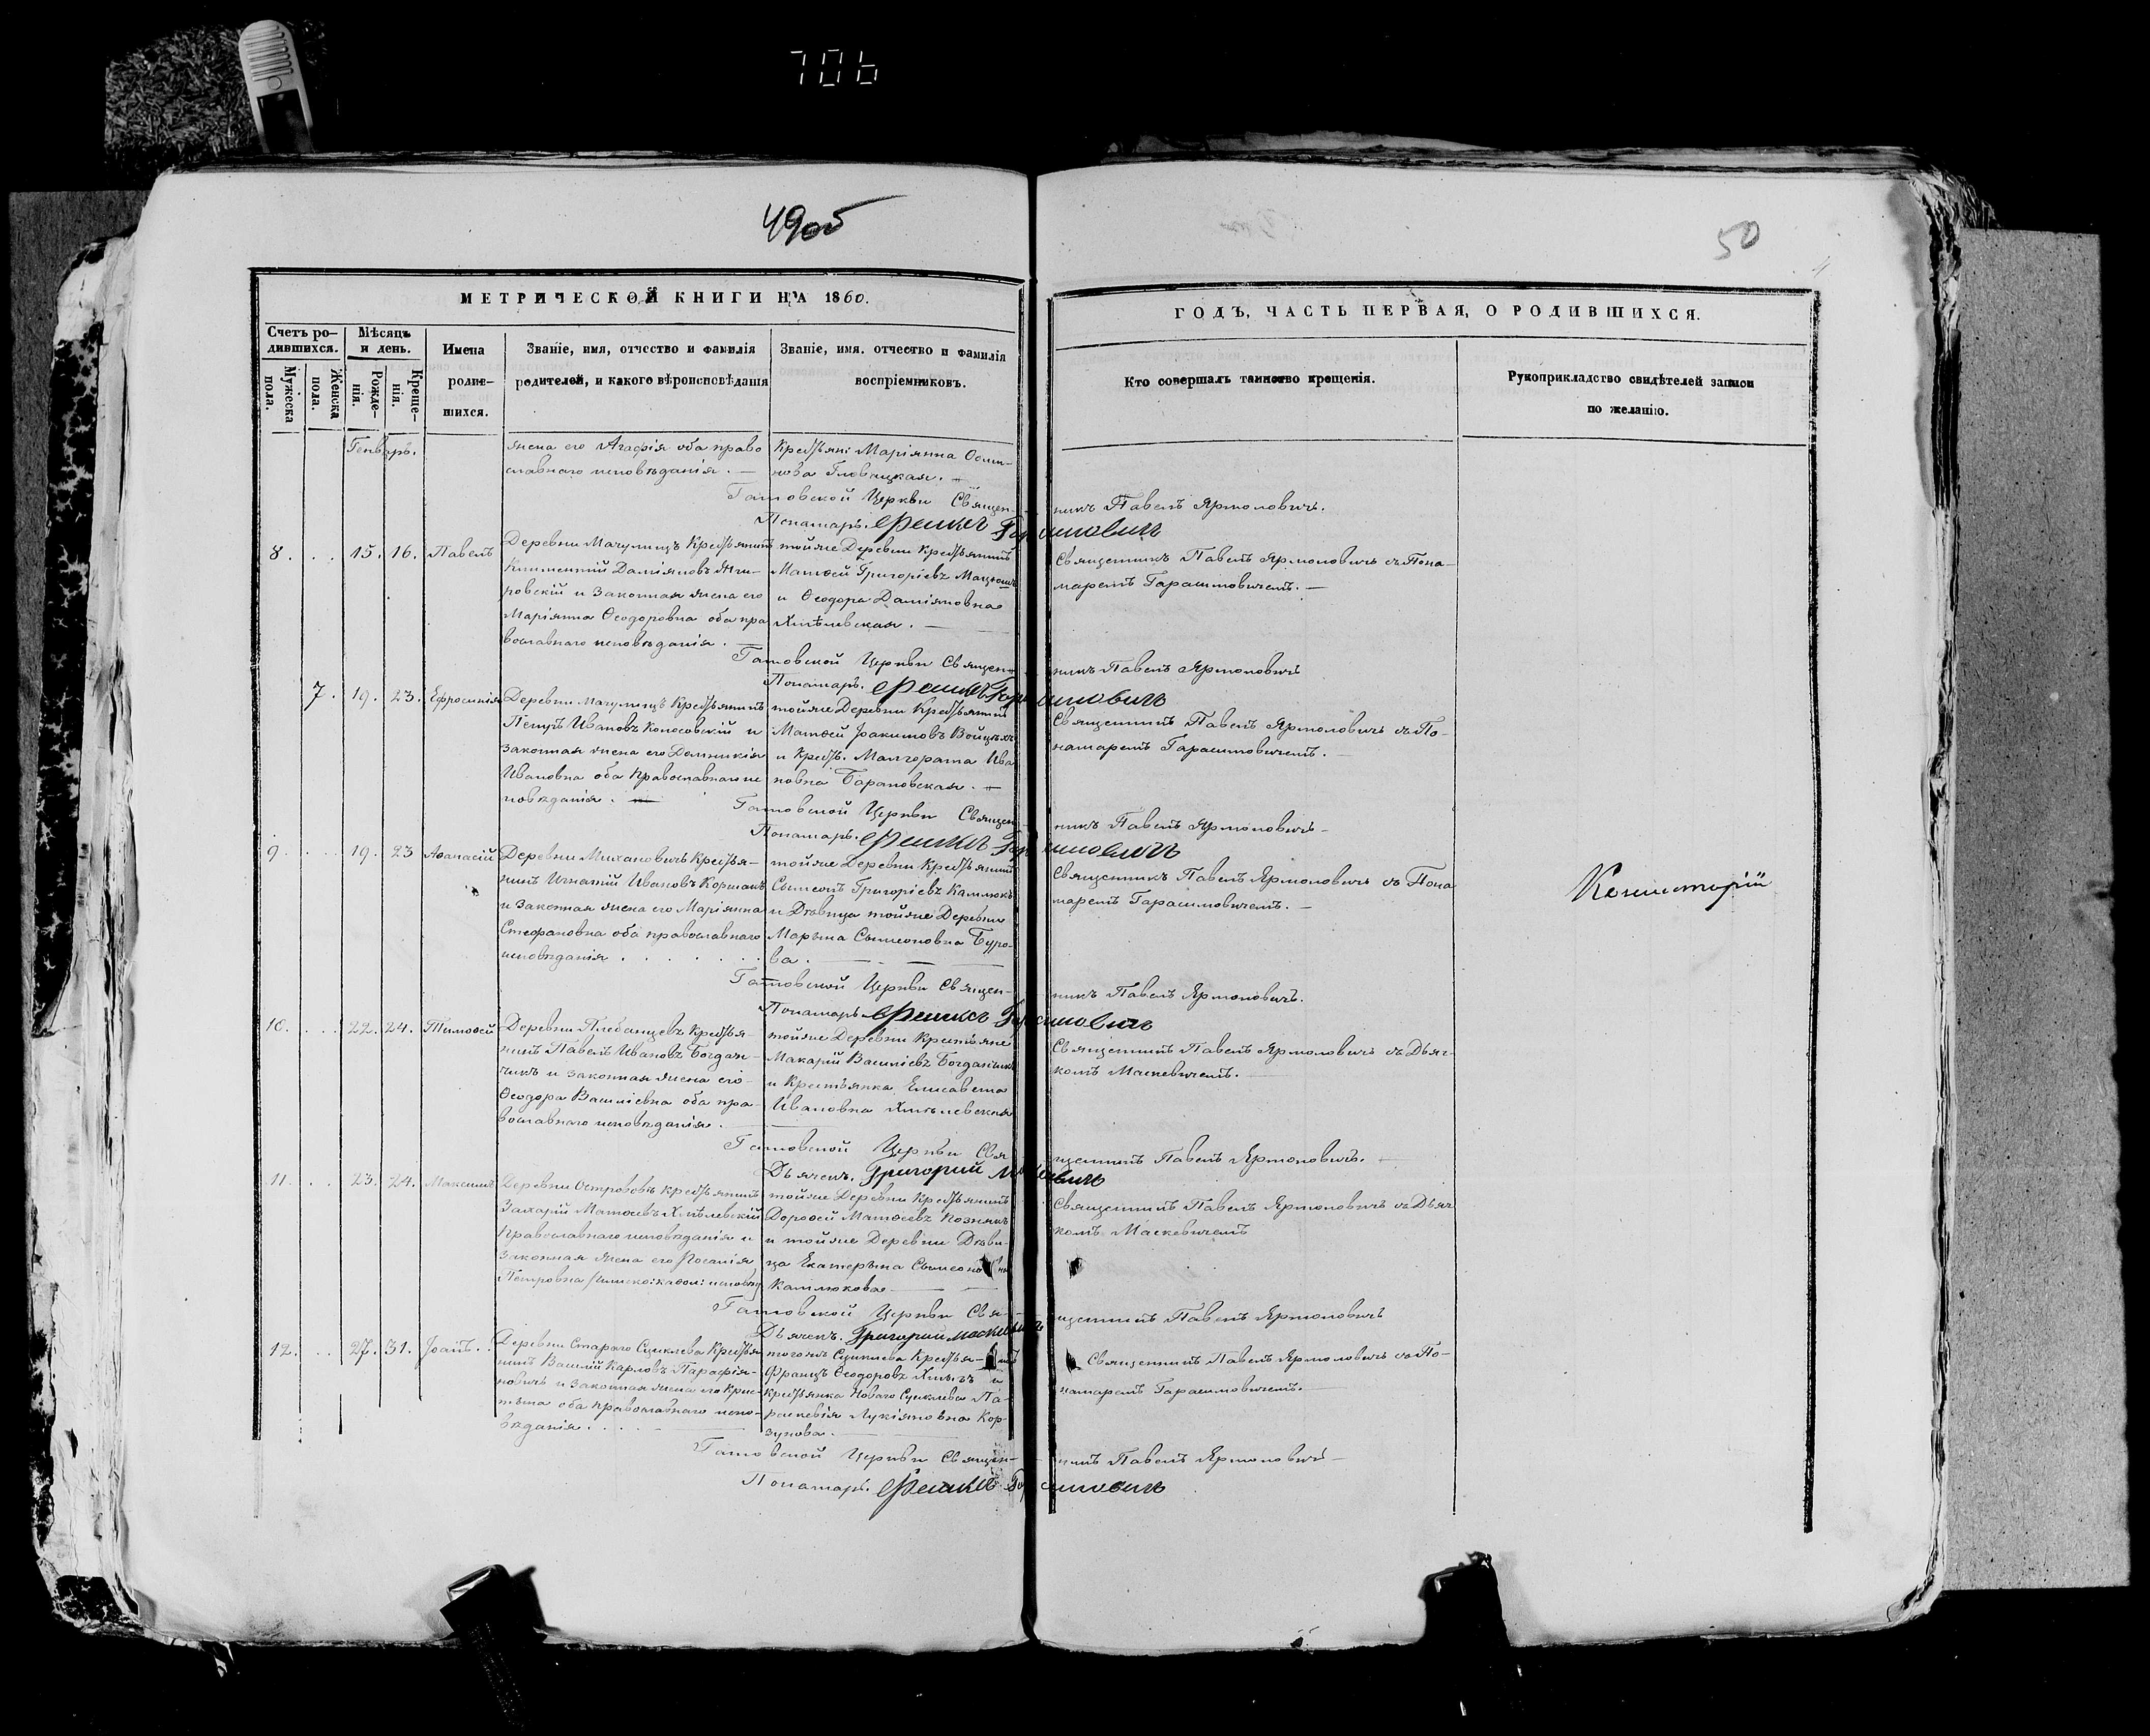 706
49об
50
МЕТРИЧЕСКОЙ КНИГИ НА 1860.
ГОДЪ, ЧАСТЬ ПЕРВАЯ, О РОДИВШИХСЯ.
Счетъ ро-
дившихся.
Мужеска
пола.
Женска
пола.
Мѣсяцъ
и день.
Рожде-
нія.
Креще-
нія.
Имена
родив-
шихся.
Званіе, имя, отчество и фамилія
родителей, и какого вѣроисповѣданія
Званіе, имя. отчество и фамилія
воспріемниковъ.
Кто совершалъ таинство крещенія.
Рукоприкладство свидѣтелей записи
по желанію.
Генварь.
жена его Агафія оба право
славнаго исповѣданія.
Маріянна Осли-
нова Гловацкая.
Гатовской Церкви Священ-
никъ Павелъ Ярмоловичъ.
Понамарь Гарашмовичъ
8. 15. 16. Павелъ
Деревни Мачулищъ
Даміяновъ
ровскій и Законная жена его
Маріянна Ѳеодоровна оба пра
вославнаго исповѣданія.
тойже Деревни
Матѳей Григоріевъ
и Ѳеодора Даміяновна
Хмѣлевская.
Священникъ Павелъ Ярмоловичъ съ Пона-
маремъ Гарашмовичемъ.
Гатовской Церкви Священ-
никъ Павелъ Ярмоловичъ
Понамарь Гарашмовичъ
7. 19. 23. Ефросинія
Деревни Мачулищъ
Ивановъ Колосовскій и
законная жена его Домникія
Ивановна оба Православнаго ис
повѣданія.
тойже Деревни
Матѳей Іоакимовъ
и Малгората Ива
новна Барановская.
Священникъ Павелъ Ярмоловичъ съ По-
намаремъ Гарашмовичемъ.
Гатовской Церкви Священ-
никъ Павелъ Ярмоловичъ
Понамарь Гарашмовичъ
9. 19. 23 Аѳанасій
Деревни Михановичъ
нинъ Игнатій Ивановъ
и Законная жена его Маріянна
Стефановна оба православнаго
исповѣданія
тойже Деревни
Сымеонъ Григоріевъ Камлюкъ
и Дѣвица тойже Деревни
Марьна Сымеоновна Буро-
ва.
Священникъ Павелъ Ярмоловичъ съ Пона
маремъ Гарашмовичемъ.
Консисторіи
Гатовской Церкви Священ-
никъ Павелъ Ярмоловичъ.
Понамарь Гарашмовичъ
10. 22. 24. Тимоѳей
Деревни Плебанцевъ
нинъ Павелъ Иванов Богдан-
чикъ и законная жена его
Ѳеодора Василіевна оба пра-
вославнаго исповѣданія.
тойже Деревни Крестьяне
Макарій Василіевъ Богданчикъ
и Крестьянка Елисавета
Ивановна Хмѣлевская
Священникъ Павелъ Ярмоловичъ съ Дьяч-
комъ Маскевичемъ.
Гатовской Церкви Свя
щенникъ Павелъ Ярмоловичъ.
Дьячекъ. Григорій Маскевичъ
11. 23. 24. Максимъ
Захарій Матѳеевъ Хмѣлевскій
Православнаго исповѣданія и
законная жена его Росалія
Петровна
тойже Деревни
Дороѳей Матѳеевъ Познякъ
и тойже Деревни Дѣви-
ца Екатерына Сымеоновна
Камлюкова
Священникъ Павелъ Ярмоловичъ съ Дьяч
комъ Маскевичемъ
Гатовской Церкви Свя-
щенникъ Павелъ Ярмоловичъ
Дьячекъ. Григорій Маскевичъ
12. 27. 31. Іоанъ.
Деревни Стараго Сцикловa
нинъ Василій Карловъ Парафія-
новичъ и Законная жена его Крис-
тына оба православнаго испо-
вѣданія.
Францъ Ѳеодоровъ
Новаго Па-
раскевія Лукіяновна Кор-
зунова.
Священникъ Павелъ Ярмоловичъ съ По-
намаремъ Гарашмовичемъ.
Гатовской Церкви Священ-
никъ Павелъ Ярмоловичъ
Понамарь Гарашмовичъ